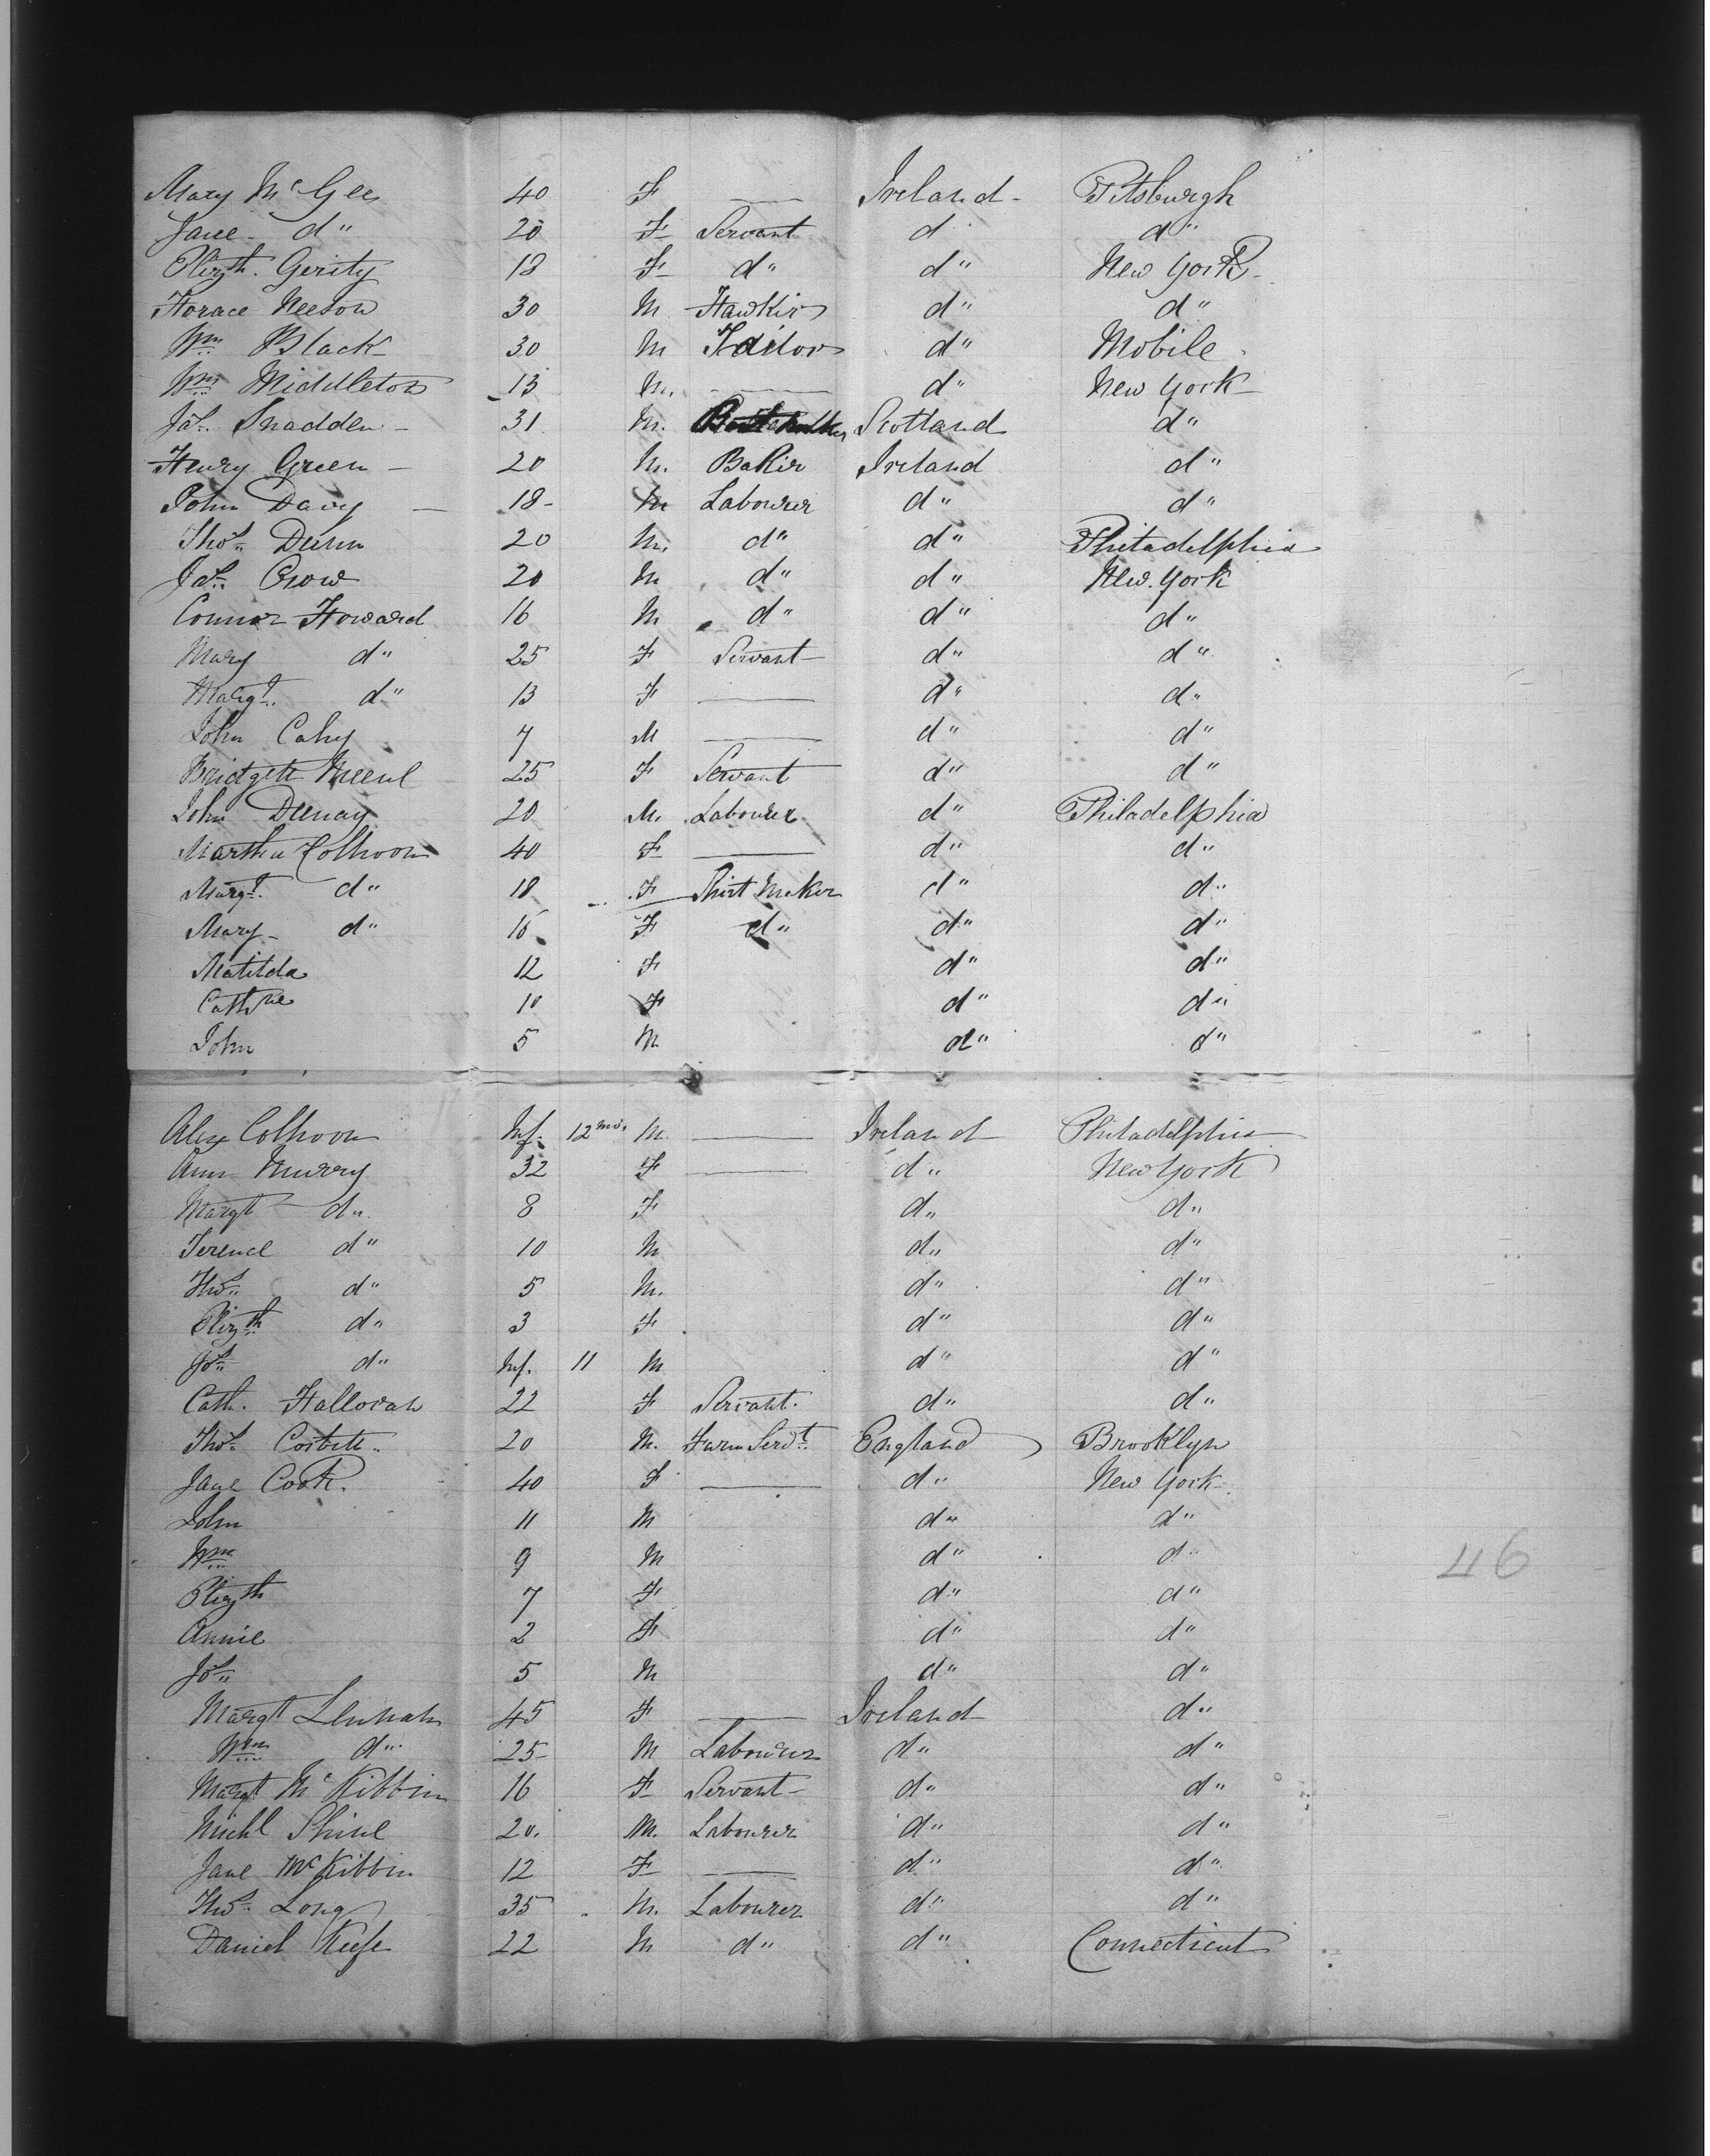 Mary McGee 40 F — Ireland Pitsburgh
Jane d" 20 F Servant d" d"
Elizth. Gerity 18 F d" d" New York
Horace Neeson 30 M Hawker d" d"
Wm Black 30 M Tailor d" Mobile
Wm Middleton 13 M. — d" New York
Jas. Snadden 31 M. Scotland d"
Henry Green 20 M. Baker Ireland d"
John Davy — 18 M Labourer d" d"
Thos. Dunn 20 M. d" d" Philadelphia
Jas. Crow 20 M d" d" New York
Connor Howard 16 M d" d" d"
Mary d" 25 F Servant d" d"
Margt. d" 13 F — d" d"
John Cahy 7 M — d" d"
Bridgett 25 F Servant d" d"
John Deenay 20 M. Labourer d" Philadelphia
Martha Colhoon 40 F — d" d"
Margt. d" 18 F Shirt Maker d" d"
Mary d" 16 F d" d" d"
Matilda 12 F d" d"
Cathne 10 F d" d"
John 5 M d" d"
Alex Colhoon Inf. 12 mos. M. — Ireland Philadelphia
Ann Murry 32 F — d" New York
Margt d" 8 F d" d"
Terence d" 10 M d" d"
Thos. d" 5 M. d" d"
Elizth d" 3 F d" d"
Jos. d" Inf. 11 M d" d"
Cath. Halloran 22 F Servant. d" d"
Thos. Corbett 20 M. Farm Servt. England Brooklyn
Jane Cook. 40 F — d" New York
John 11 M d" d"
Wm 9 M d" d"
Elizth 7 F d" d"
Annie 2 F d" d"
Jos. 5 M d" d"
Margt Lenhan 45 F — Ireland d"
Wm d" 25 M Labourer d" d"
Margt McKibbin 16 F Servant d" d"
Michl Shine 20. M. Labourer d" d"
Jane McKibbin 12 F — d" d"
Thos. Long 35 M. Labourer d" d"
Daniel Keefe 22 M d" d" Connecticut
46